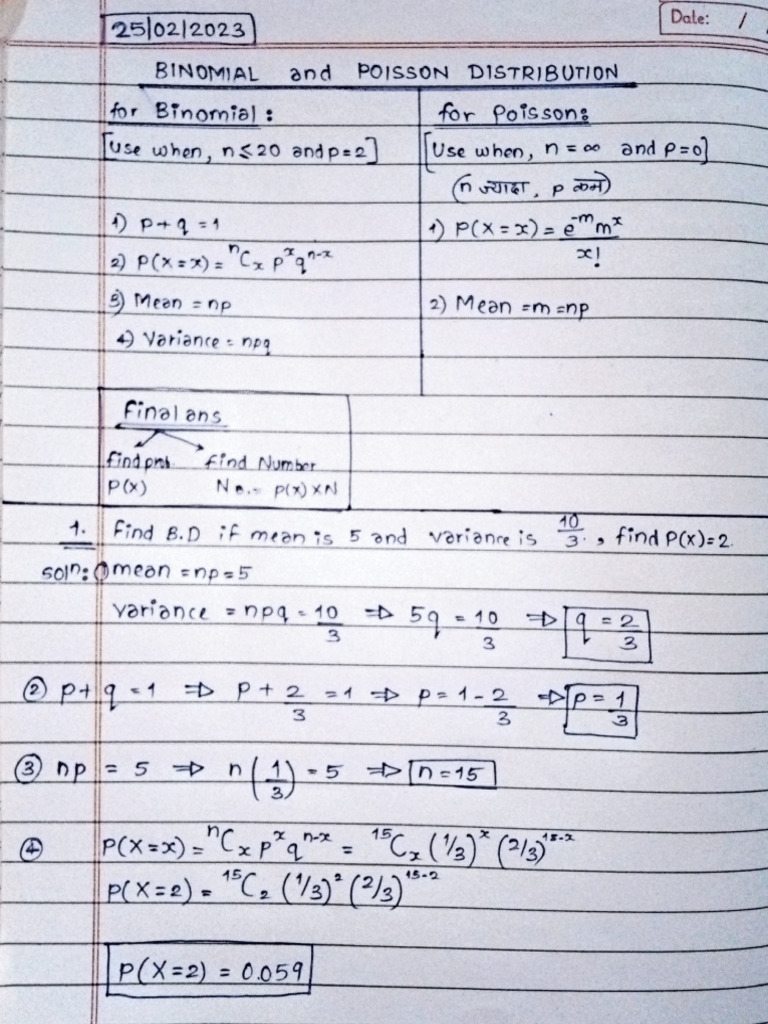 25/02/2023
Date: /
BINOMIAL and POISSON DISTRIBUTION
for Binomial :
[Use when, n ≤ 20 and p=2]
1) p+q =1
2) P(X=x) = ⁿCₓ pˣqⁿ⁻ˣ
3) Mean = np
4) Variance = npq
for Poisson:
[Use when, n = ∞ and p=0]
(n ज्यादा, p कम)
1) P(X=x) = e⁻ᵐmˣ/x!
2) Mean =m =np
Final ans
find prob. find Number
P(x) No.= p(x)×N
1. Find B.D if mean is 5 and variance is 10/3, find P(X)=2.
soln: ① mean =np=5
variance = npq = 10/3 ⇒ 5q = 10/3 ⇒ q = 2/3
② p+q =1 ⇒ p+ 2/3 =1 ⇒ p= 1- 2/3 ⇒ p= 1/3
③ np = 5 ⇒ n(1/3) = 5 ⇒ n=15
④ P(X=x) = ⁿCₓ pˣqⁿ⁻ˣ = ¹⁵Cₓ (1/3)ˣ (2/3)¹⁵⁻ˣ
P(X=2) = ¹⁵C₂ (1/3)² (2/3)¹⁵⁻²
P(X=2) = 0.059